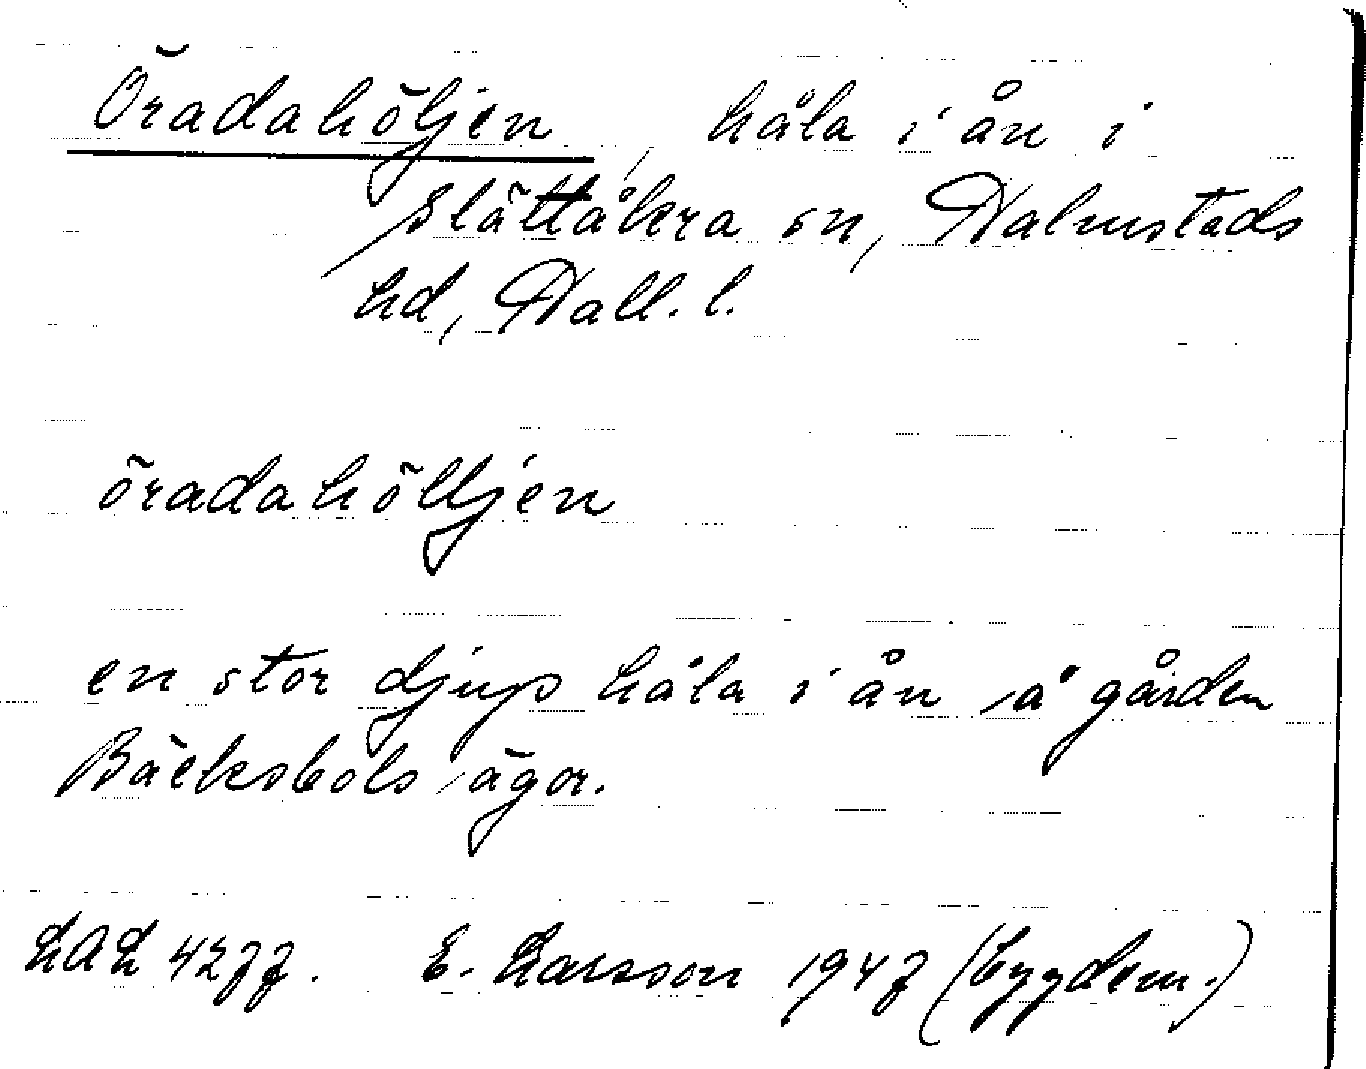 Öradahöljen, håla i ån i
Slättåkra sn, Halmstads
hd, Hall. l.
öradahölljen
en stor djup håla i ån å gården
Bäcksbols ägor.
LAL 4277. E. Larsson 1947 (bygdem.)